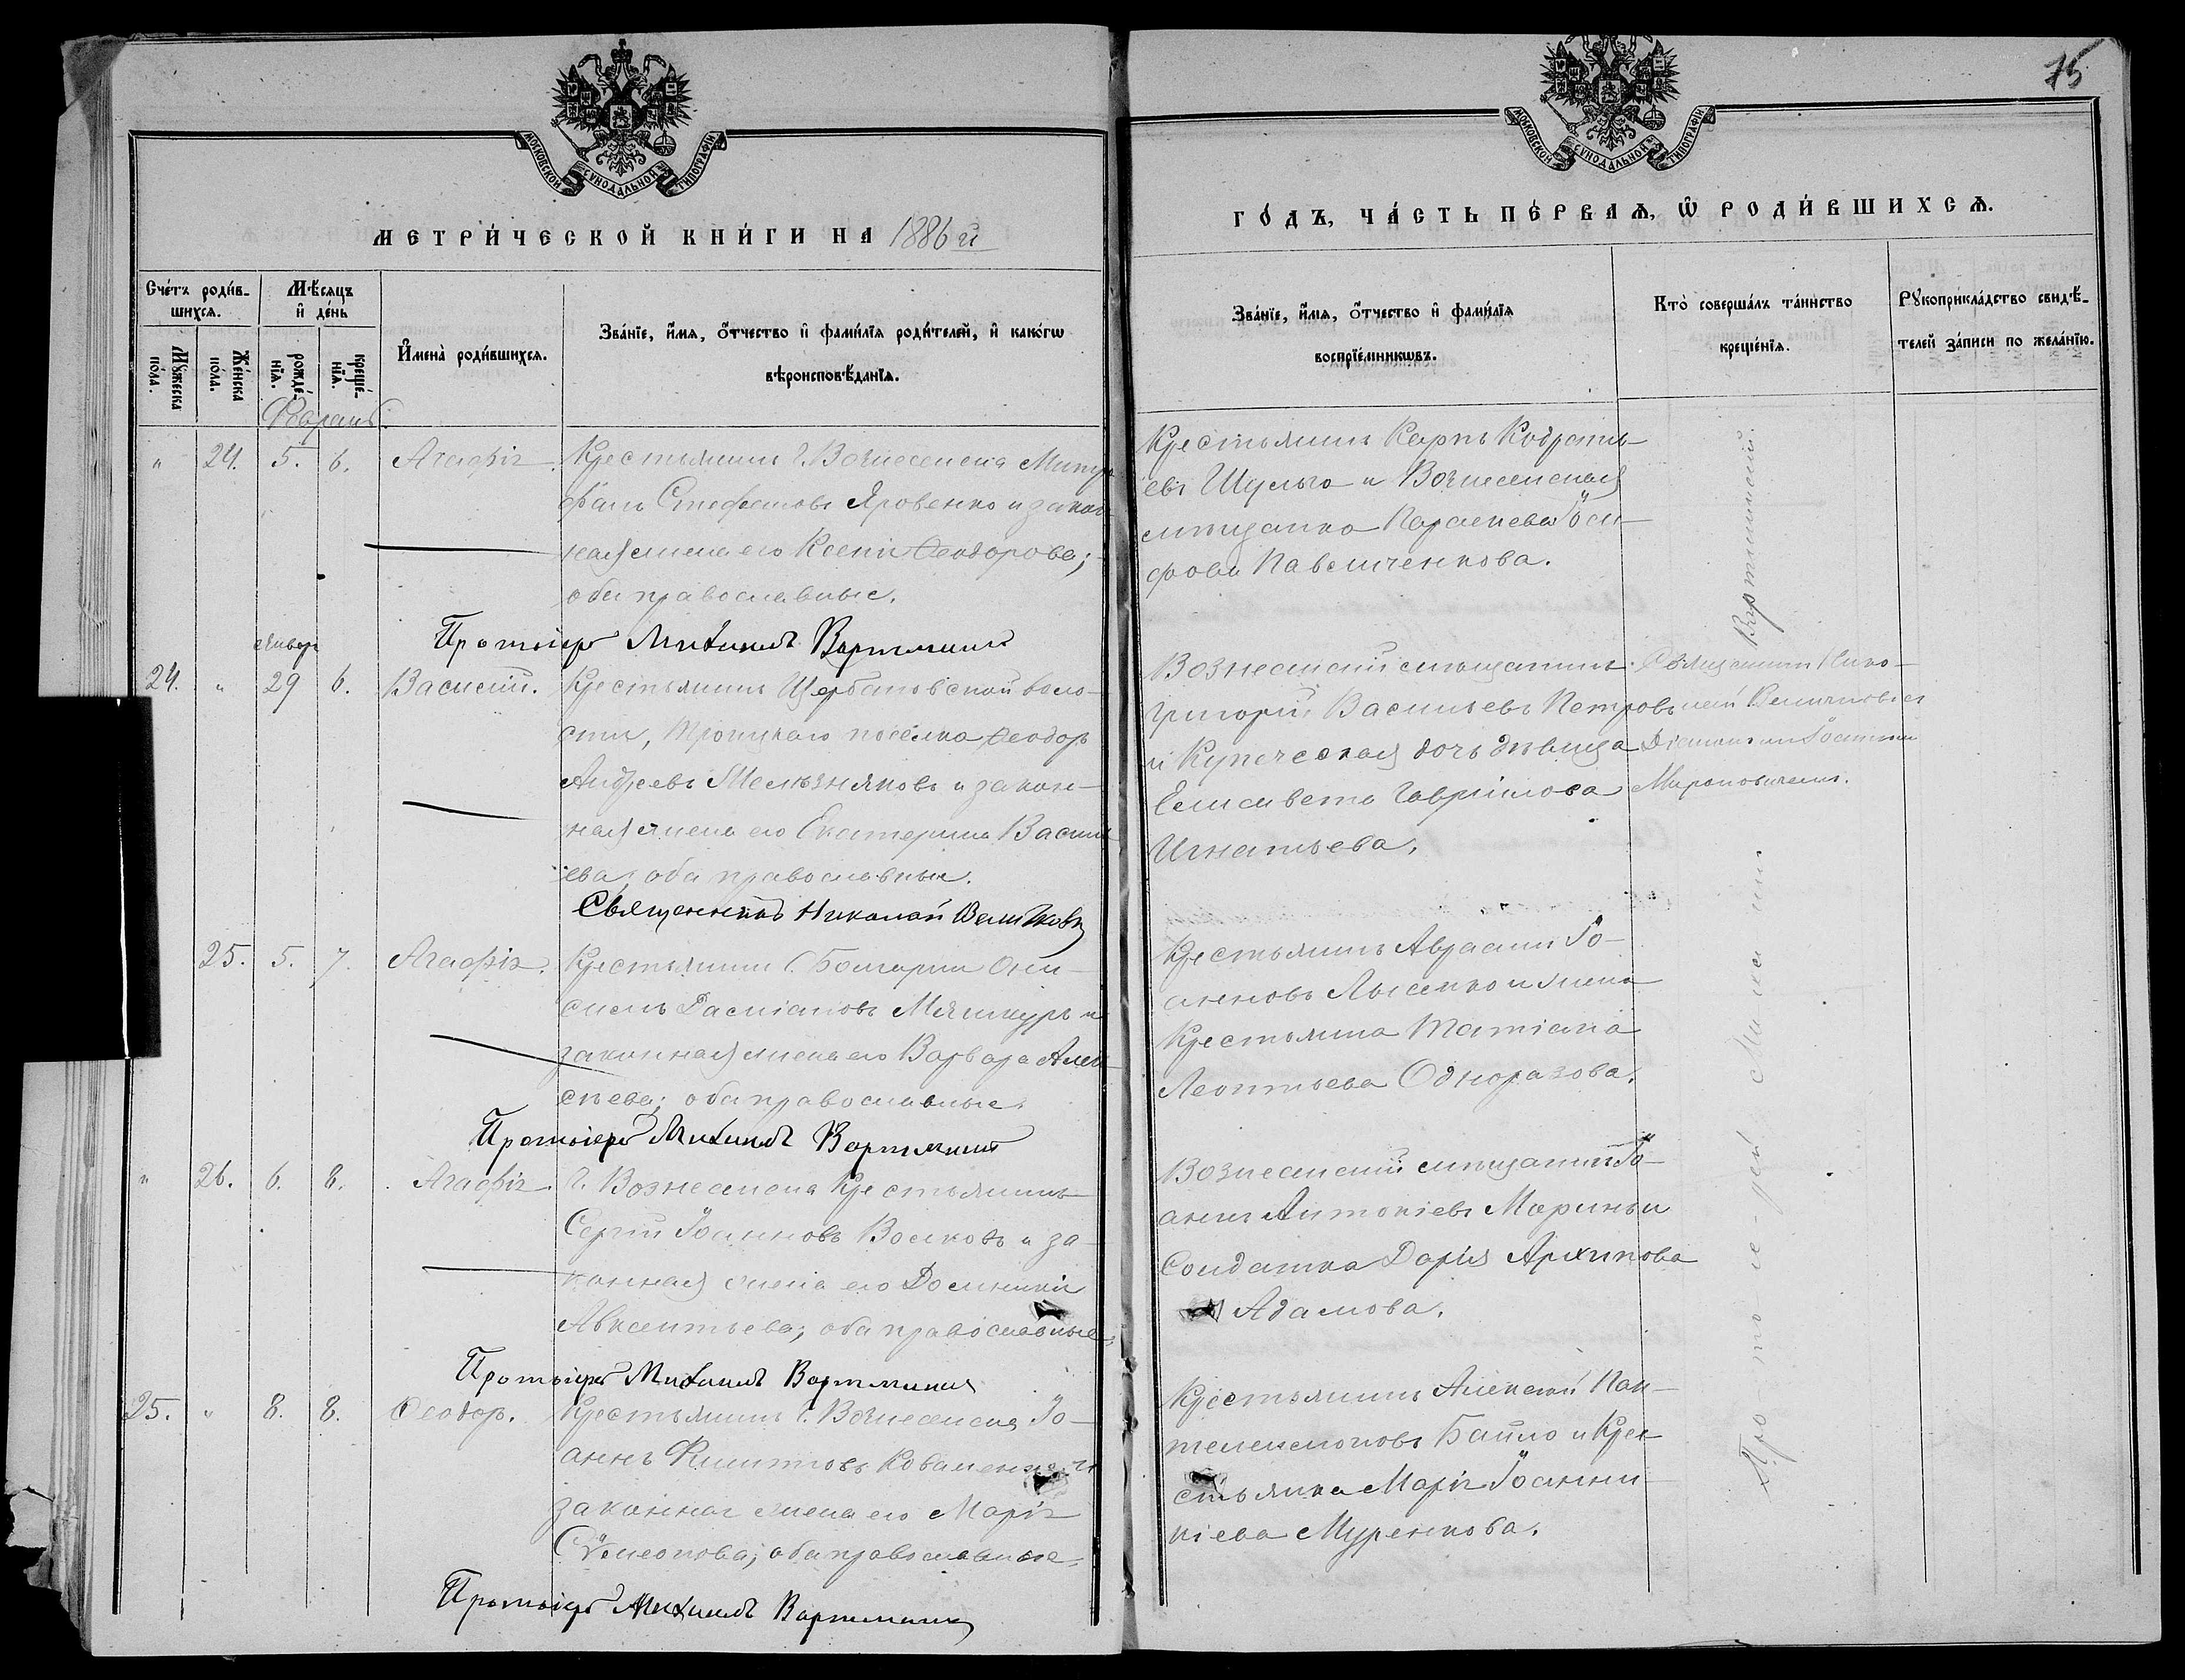 МОСКОВСКОЙ СѴНОДАЛЬНОЙ ТИПОГРАФІИ
МЕТРИ́ЧЕСКОЙ КНИ́ГИ НА 1886 й
Сче́тъ роди́в-
шихсѧ.
Мꙋжеска
по́ла.
Же́нска
по́ла.
Мѣ́сѧцъ
и҆ де́нь
рожде́-
нїѧ.
креще́-
нїѧ.
И҆мена̀ роди́вшихсѧ.
Зва́нїе, и҆́мѧ, ѻ҆́тчество и҆ фами́лїѧ роди́телей, и҆ како́гѡ
вѣроисповѣ́данїѧ.
Февраль.
" 24. 5. 6. Агафія. Крестьянинъ г. Вознесенска Митро-
фанъ Стефановъ Яровенко и закон-
ная жена его Ксенія Ѳеодорова;
оба православные.
Протоіерей Михаилъ
Январ
24. " 29 6. Василій. Крестьянинъ Щербановской воло-
сти, Троицкаго посёлка Ѳеодоръ
Андреевъ и закон-
ная жена его Екатерина Василь-
ева, оба православные.
Священникъ Николай Величковъ
25. 5. 7. Агафія. Крестьянинъ с. Болгарки Они-
симъ Дасміановъ и
законная жена его Варвара Алек-
сѣева; оба православные.
Протоіерей Михаилъ
" 26. 6. 8. Агафія. г. Вознесенска Крестьянинъ
Сергій Іоанновъ Волковъ и за-
конная жена его Домникія
Авксентьева; оба православные.
Протоіерей Михаилъ
25. " 8. 8. Ѳеодоръ. Крестьянинъ г. Вознесенска Іо-
аннъ Филиповъ Коваленко и
законная жена его Марія
Сѵмеонова; оба православные.
Протоіерей Михаилъ
75
МОСКОВСКОЙ СѴНОДАЛЬНОЙ ТИПОГРАФІИ
ГО́ДЪ, ЧА́СТЬ ПЕ́РВАѦ, Ѡ҆ РОДИ́ВШИХСѦ.
Зва́нїе, и҆́мѧ, ѻ҆́тчество и҆ фами́лїѧ
воспрїе́мникѡвъ.
Кто̀ соверша́лъ та́инство
креще́нїѧ.
Рꙋкоприкла́дство свидѣ́-
телей за́писи по жела́нїю.
Крестьянинъ Карпъ Кодрать-
евъ Шульга и Вознесенская
мѣщанка Параскева Іоси-
фова Павличенкова.
Вознесенскій мѣщанинъ
Григорій Васильевъ Петровъ
и Купеческая дочь дѣвица
Елисавета Гавріилова
Игнатьева.
Священникъ Нико-
лай Величковъ съ
Діакономъ Іоанномъ
Мироновичемъ.
Крестьянинъ Авраамъ Іо-
анновъ Лысенко и жена
Крестьянина Татіана
Леонтьева Одноразова.
Вознесенскій мѣщанинъ Іо-
аннъ Антоніевъ Мариньи
Солдатка Дарія Архипова
Адамова.
Крестьянинъ Алексій Пан-
телеимоновъ Байло и Кре-
стьянка Марія Іоанни-
кіева Муренкова.
Про-то-іе-рей Михаилъ